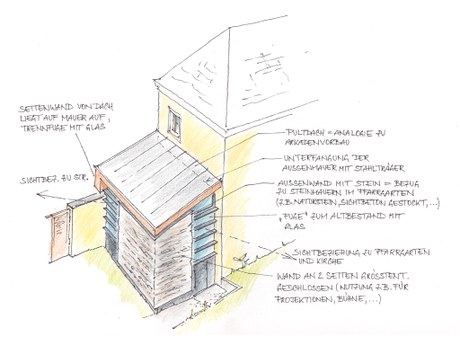 SEITENWAND VON DACH
LIEGT AUF MAUER AUF,
TRENNFUGE MIT GLAS
SICHTBEZ. ZU STR.
PULTDACH = ANALOGIE ZU
ARKADENVORBAU
UNTERFANGUNG DER
AUSSENMAUER MIT STAHLTRÄGER
AUSSENWAND MIT STEIN = BEZUG
ZU STEINMAUERN IM PFARRGARTEN
(Z.B. NATURSTEIN, SICHTBETON GESTOCKT,...)
"FUGE" ZUM ALTBESTAND MIT
GLAS
SICHTBEZIEHUNG ZU PFARRGARTEN
UND KIRCHE
WAND AN 2 SEITEN GRÖSSTENT.
GESCHLOSSEN (NUTZUNG Z.B. FÜR
PROJEKTIONEN, BÜHNE,...)